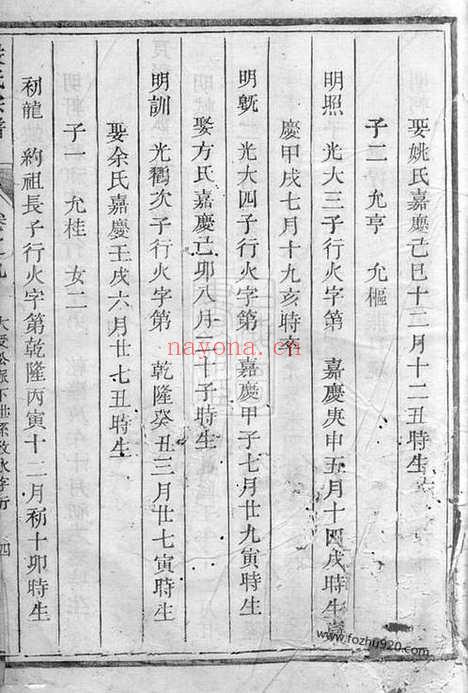 娶姚氏嘉慶己巳十二月十二丑時生
子二 允亨 允樞
明照 光大三子行火字第 嘉慶庚申五月十四戌時生嘉
慶甲戌七月十九亥時卒
明旣 光大四子行火字第 嘉慶甲子七月廿九寅時生
娶方氏嘉慶己卯八月二十子時生
明訓 光鸛次子行火字第 乾隆癸丑三月廿七寅時生
娶余氏嘉慶壬戌六月廿七丑時生
子一 允桂 女二
初龍 約祖長子行火字第乾隆丙寅十二月初十卯時生
氏宗譜 卷之九 四
nayona.cn
www.fozhu920.com